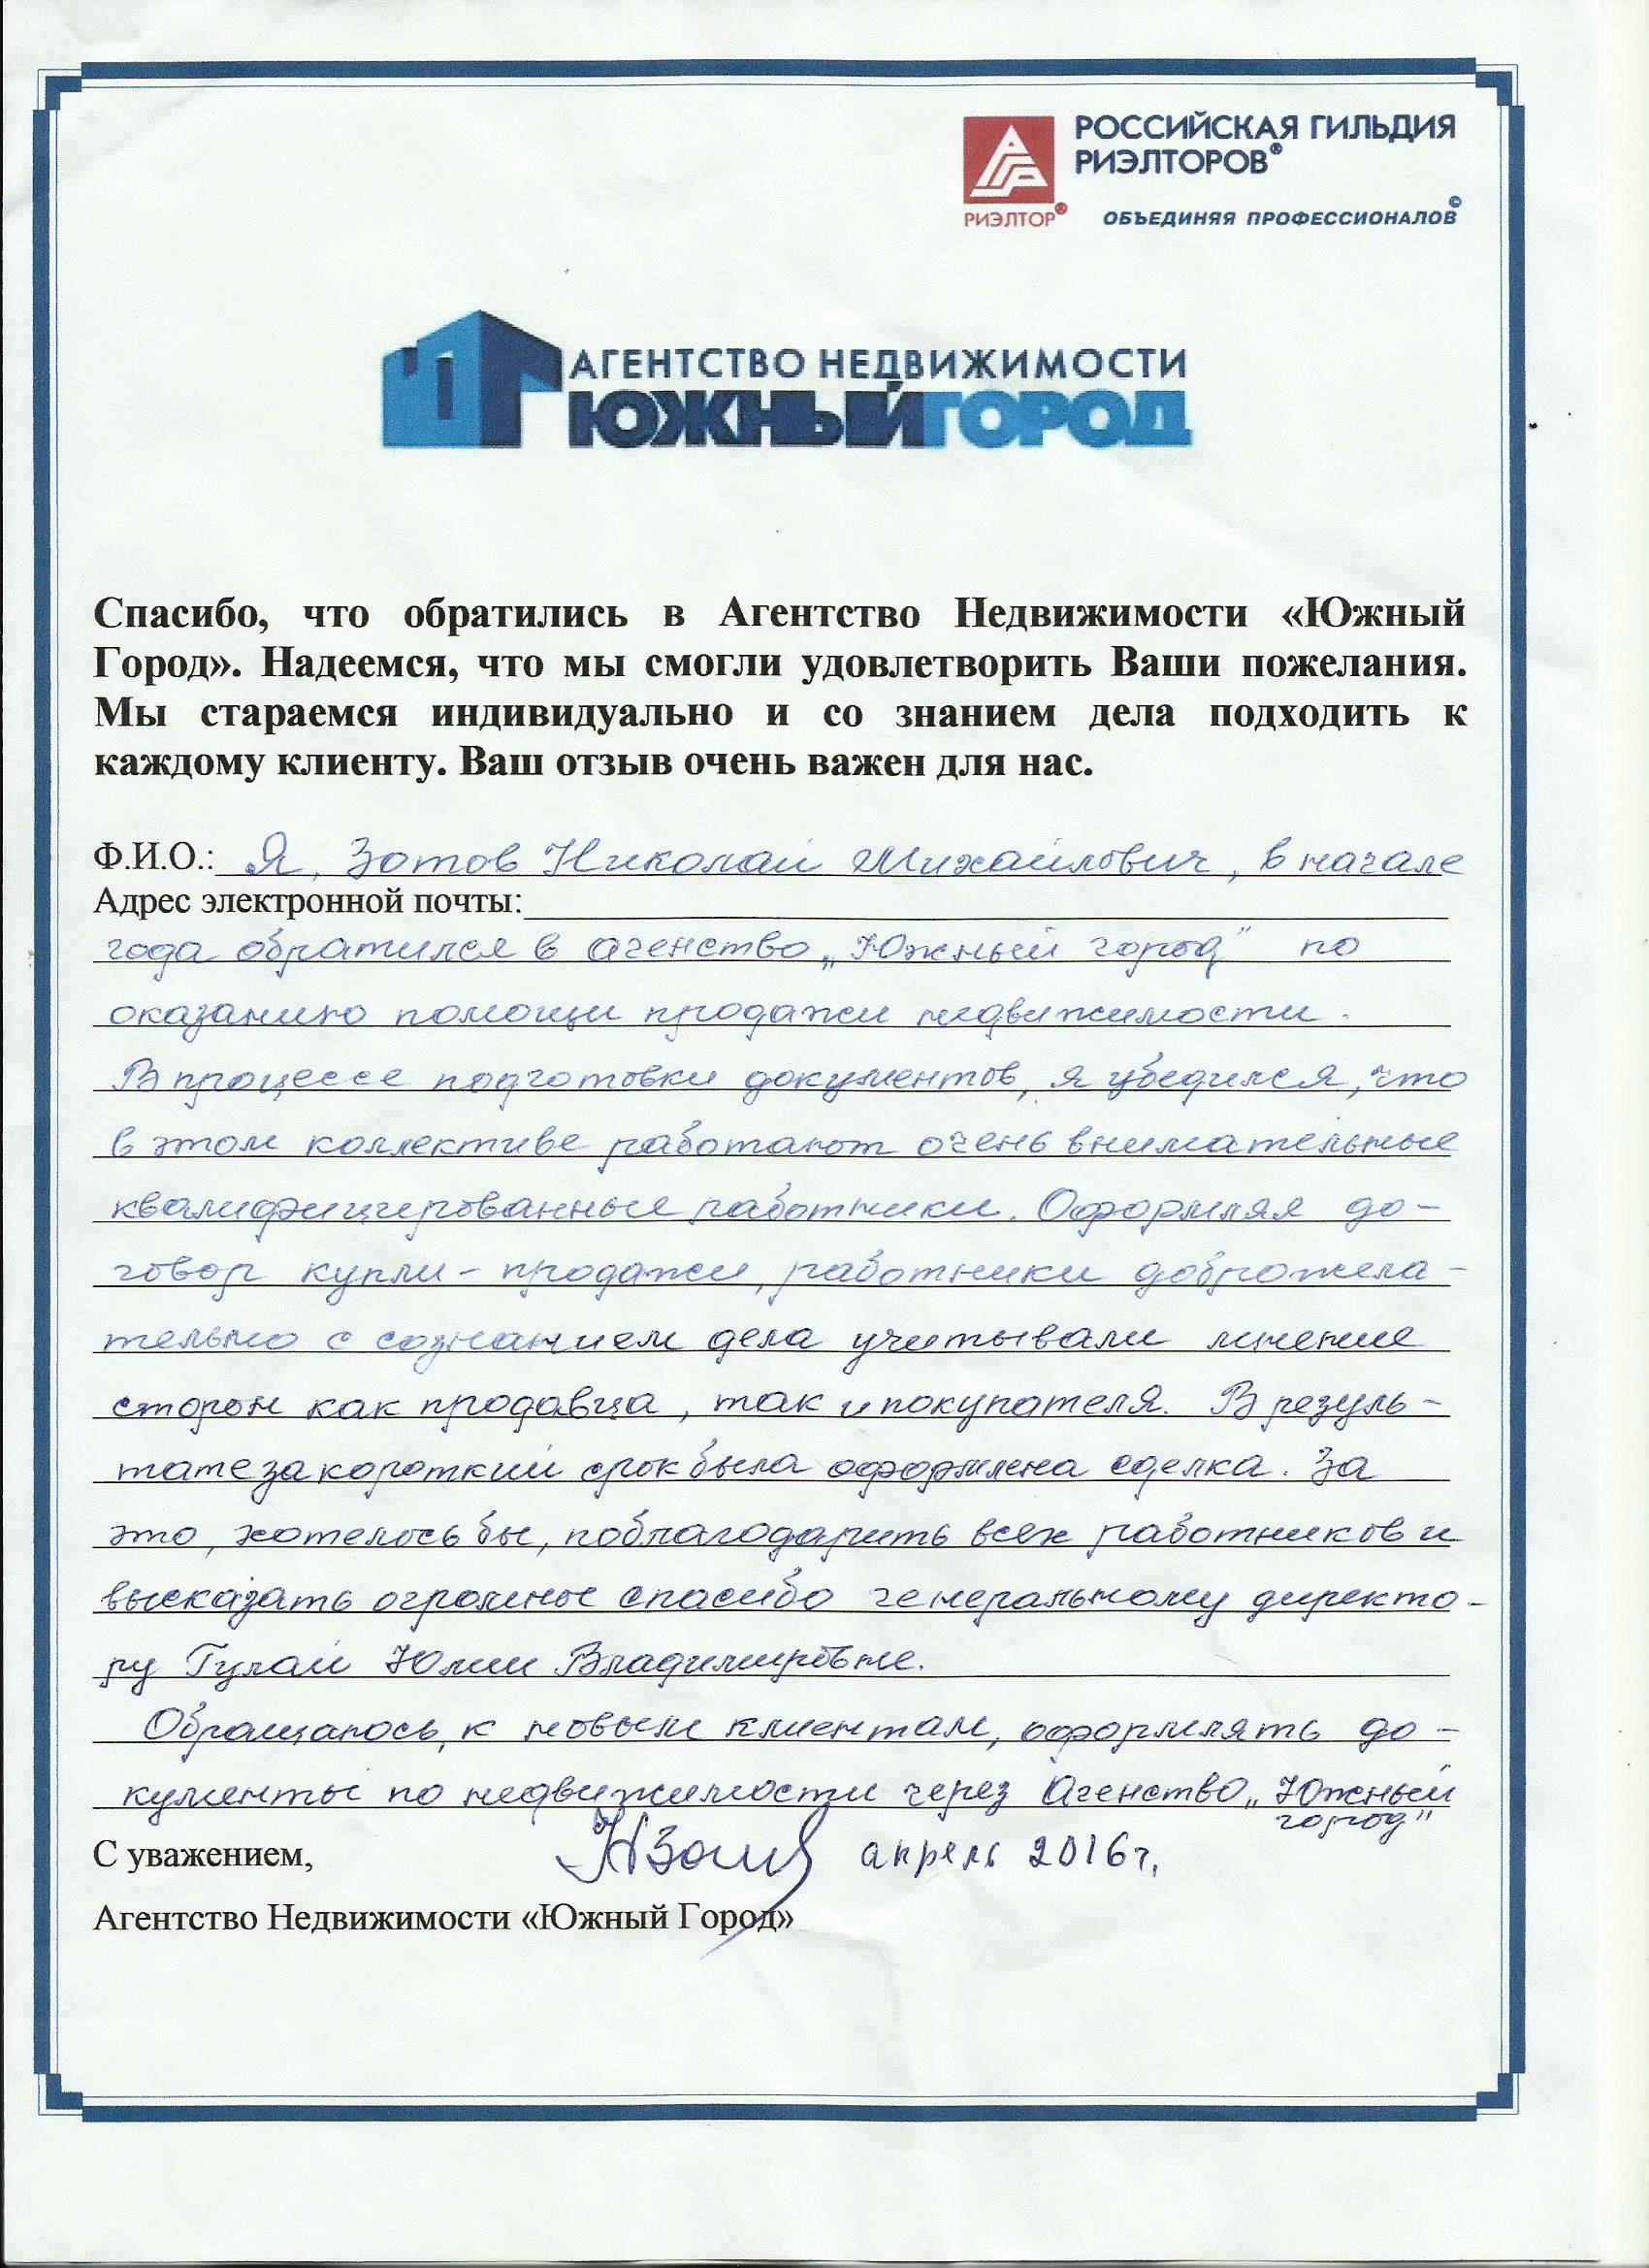 РОССИЙСКАЯ ГИЛЬДИЯ
РИЭЛТОРОВ®
РИЭЛТОР®
ОБЪЕДИНЯЯ ПРОФЕССИОНАЛОВ©
АГЕНТСТВО НЕДВИЖИМОСТИ
ЮЖНЫЙГОРОД
Спасибо, что обратились в Агентство Недвижимости «Южный
Город». Надеемся, что мы смогли удовлетворить Ваши пожелания.
Мы стараемся индивидуально и со знанием дела подходить к
каждому клиенту. Ваш отзыв очень важен для нас.
Ф.И.О.: Я, Зотов Николай Михайлович, в начале
Адрес электронной почты:
года обратился в агенство „Южный город" по
оказанию помощи продажи недвижимости.
В процессе подготовки документов, я убедился, что
в этом коллективе работают очень внимательные
квалифицированные работники. Оформляя до-
говор купли-продажи, работники доброжела-
тельно с сознанием дела учитывали мнение
сторон как продавца, так и покупателя. В резуль-
тате за короткий срок была оформлена сделка. За
это, хотелось бы, поблагодарить всех работников и
высказать огромное спасибо генеральному директо-
ру Гулай Юлии Владимировне.
Обращаюсь, к новым клиентам, оформлять до-
кументы по недвижимости через Агенство „Южный
город"
С уважением, НЗотов апрель 2016г.
Агентство Недвижимости «Южный Город»